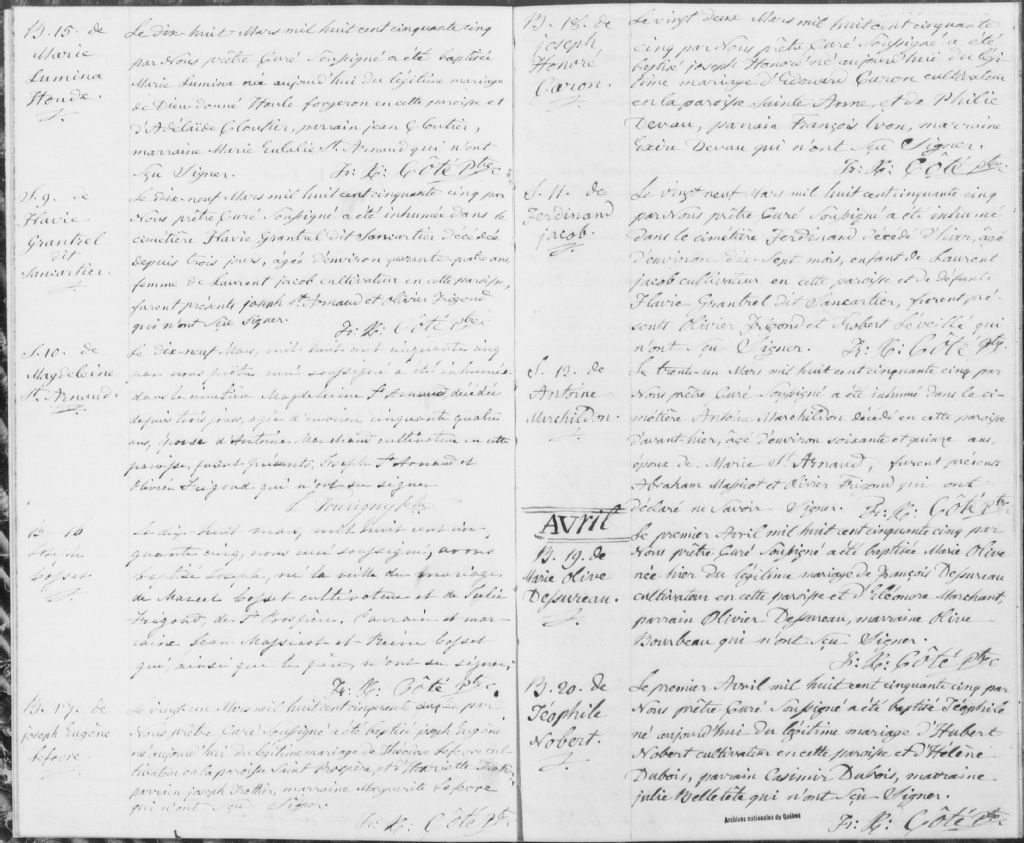 B. 15. de
Marie
Lumina
Houde.
Le dix huit Mars mil huit cent cinquante cinq
par Nous prêtre Curé Soussigné a été baptisée
Marie Lumina née aujourd'hui du légitime mariage
de Dieu-donné Houle forgeron en cette paroisse et
d'Adélaïde Cloutier, parrain jean Cloutier,
marraine Marie Eulalie St. Arnaud qui n'ont
Sçu Signer. Fr: X: Côté Ptre
S. 9. de
Flavie
Grantrel
dit
Sancartier.
Le dix-neuf Mars mil huit cent cinquante cinq par
Nous prêtre Curé Soussigné a été inhumée dans le
cimétière Flavie Grantrel dit Sancartier décédée
depuis trois jours, agée d'environ quarante quatre ans,
femme de Laurent jacob cultivateur en cette paroisse,
furent présents joseph St. Arnaud et Olivier Frigond
qui n'ont Sçu Signer. Fr: X: Côté Ptre
S. 10. de
Magdeleine
St. Arnaud.
Le dix-neuf Mars, mil huit cent cinquante cinq
par nous prêtre curé soussigné a été inhumée
dans le cimetière Magdeleine St Arnaud décédée
depuis trois jours, agée d'environ cinquante quatre
ans, épouse d'Antoine Marchand cultivateur en cette
paroisse, furent présents, Joseph St Arnaud et
Olivier Frigond qui n'ont su signer
B. 16
Joseph
Cosset
Le dix-huit mars, mil huit cent cin-
quante cinq, nous curé soussigné, avons
baptisé Joseph, né la veille du mariage
de Marcel Cosset cultivateur et de Julie
Frigond, de St Prospère. Parrain et mar-
raine Jean Massicot et Reine Cosset
qui, ainsi que le père, n'ont su signer.
Fr: X: Côté Ptre
B. 17. de
joseph Eugène
Lefevre.
Le vingt un Mars mil huit cent cinquante cinq par
Nous prêtre Curé Soussigné a été baptisé joseph Eugène
né aujourd'hui du légitime mariage de Théodore Lefevre cul-
tivateur en la paroisse Saint Prospère, et d'Henriette Trottier,
parrain joseph Trottier, marraine Marguerite Lefevre
qui n'ont Sçu Signer
Fr: X: Côté Ptre
B. 18. de
joseph
Honoré
Caron.
Le vingt deux Mars mil huit cent cinquante
cinq par Nous prêtre Curé Soussigné a été
baptisé joseph Honoré né aujourd'hui du légi-
time mariage d'Edouard Caron cultivateur
en la paroisse Sainte Anne, et de Philie
Devau, parrain François Yvon, marraine
Exire Devau qui n'ont Sçu Signer.
Fr: X: Côté Ptre
S. 11. de
Ferdinand
jacob.
Le vingt neuf Mars mil huit cent cinquante cinq
par Nous prêtre Curé Soussigné a été inhumé
dans le cimétière Ferdinand décédé d'hier, âgé
d'environ dix Sept mois, enfant de Laurent
jacob cultivateur en cette paroisse et de défunte
Flavie Grantrel dit Sancartier, furent pré-
sents Olivier Frigond et Norbert Léveillé qui
n'ont Sçu Signer. Fr: X: Côté Ptre
S. 12. de
Antoine
Marchildon.
Le trente-un Mars mil huit cent cinquante cinq par
Nous prêtre Curé Soussigné a été inhumé dans le ci-
métière Antoine Marchildon décédé en cette paroisse
d'avant hier, âgé d'environ soixante et quinze ans,
époux de Marie St. Arnaud, furent présents
Abraham Massicot et Olivier Frigond qui ont
déclaré ne Savoir Signer. Fr: X: Côté Ptre
AVril
B. 19. de
Marie Olive
Dessureau.
Le premier Avril mil huit cent cinquante cinq par
Nous prêtre Curé Soussigné a été baptisée Marie Olive
née hier du légitime mariage de François Dessureau
cultivateur en cette paroisse et d'Eléonore Marchant,
parrain Olivier Dessureau, marraine Olive
Bourbeau qui n'ont Sçu Signer.
Fr: X: Côté Ptre
B. 20. de
Téophile
Nobert.
Le premier Avril mil huit cent cinquante cinq par
Nous prêtre Curé Soussigné a été baptisé Téophile
né aujourd'hui du légitime mariage d'Hubert
Nobert cultivateur en cette paroisse et d'Hélène
Dubois, parrain Casimir Dubois, marraine
julie Belletête qui n'ont Sçu Signer.
Archives nationales du Québec
Fr: X: Côté Ptre